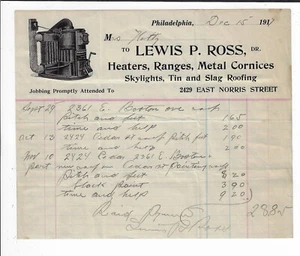 Philadelphia, Dec 15 191
Mrs
TO LEWIS P. ROSS, DR.
Heaters, Ranges, Metal Cornices
Skylights, Tin and Slag Roofing
Jobbing Promptly Attended to 2429 EAST NORRIS STREET
Sept 29 2361 E. Boston ave
pitch and felt 165
time and help 200
Oct 13 2424 Cedar st roof pitch felt 190
time and help 200
Nov 10 2424 Cedar 2361 E. Boston
paint
pitch and felt 820
black paint 390
time and help 920
2885
Paid
Lewis P Ross